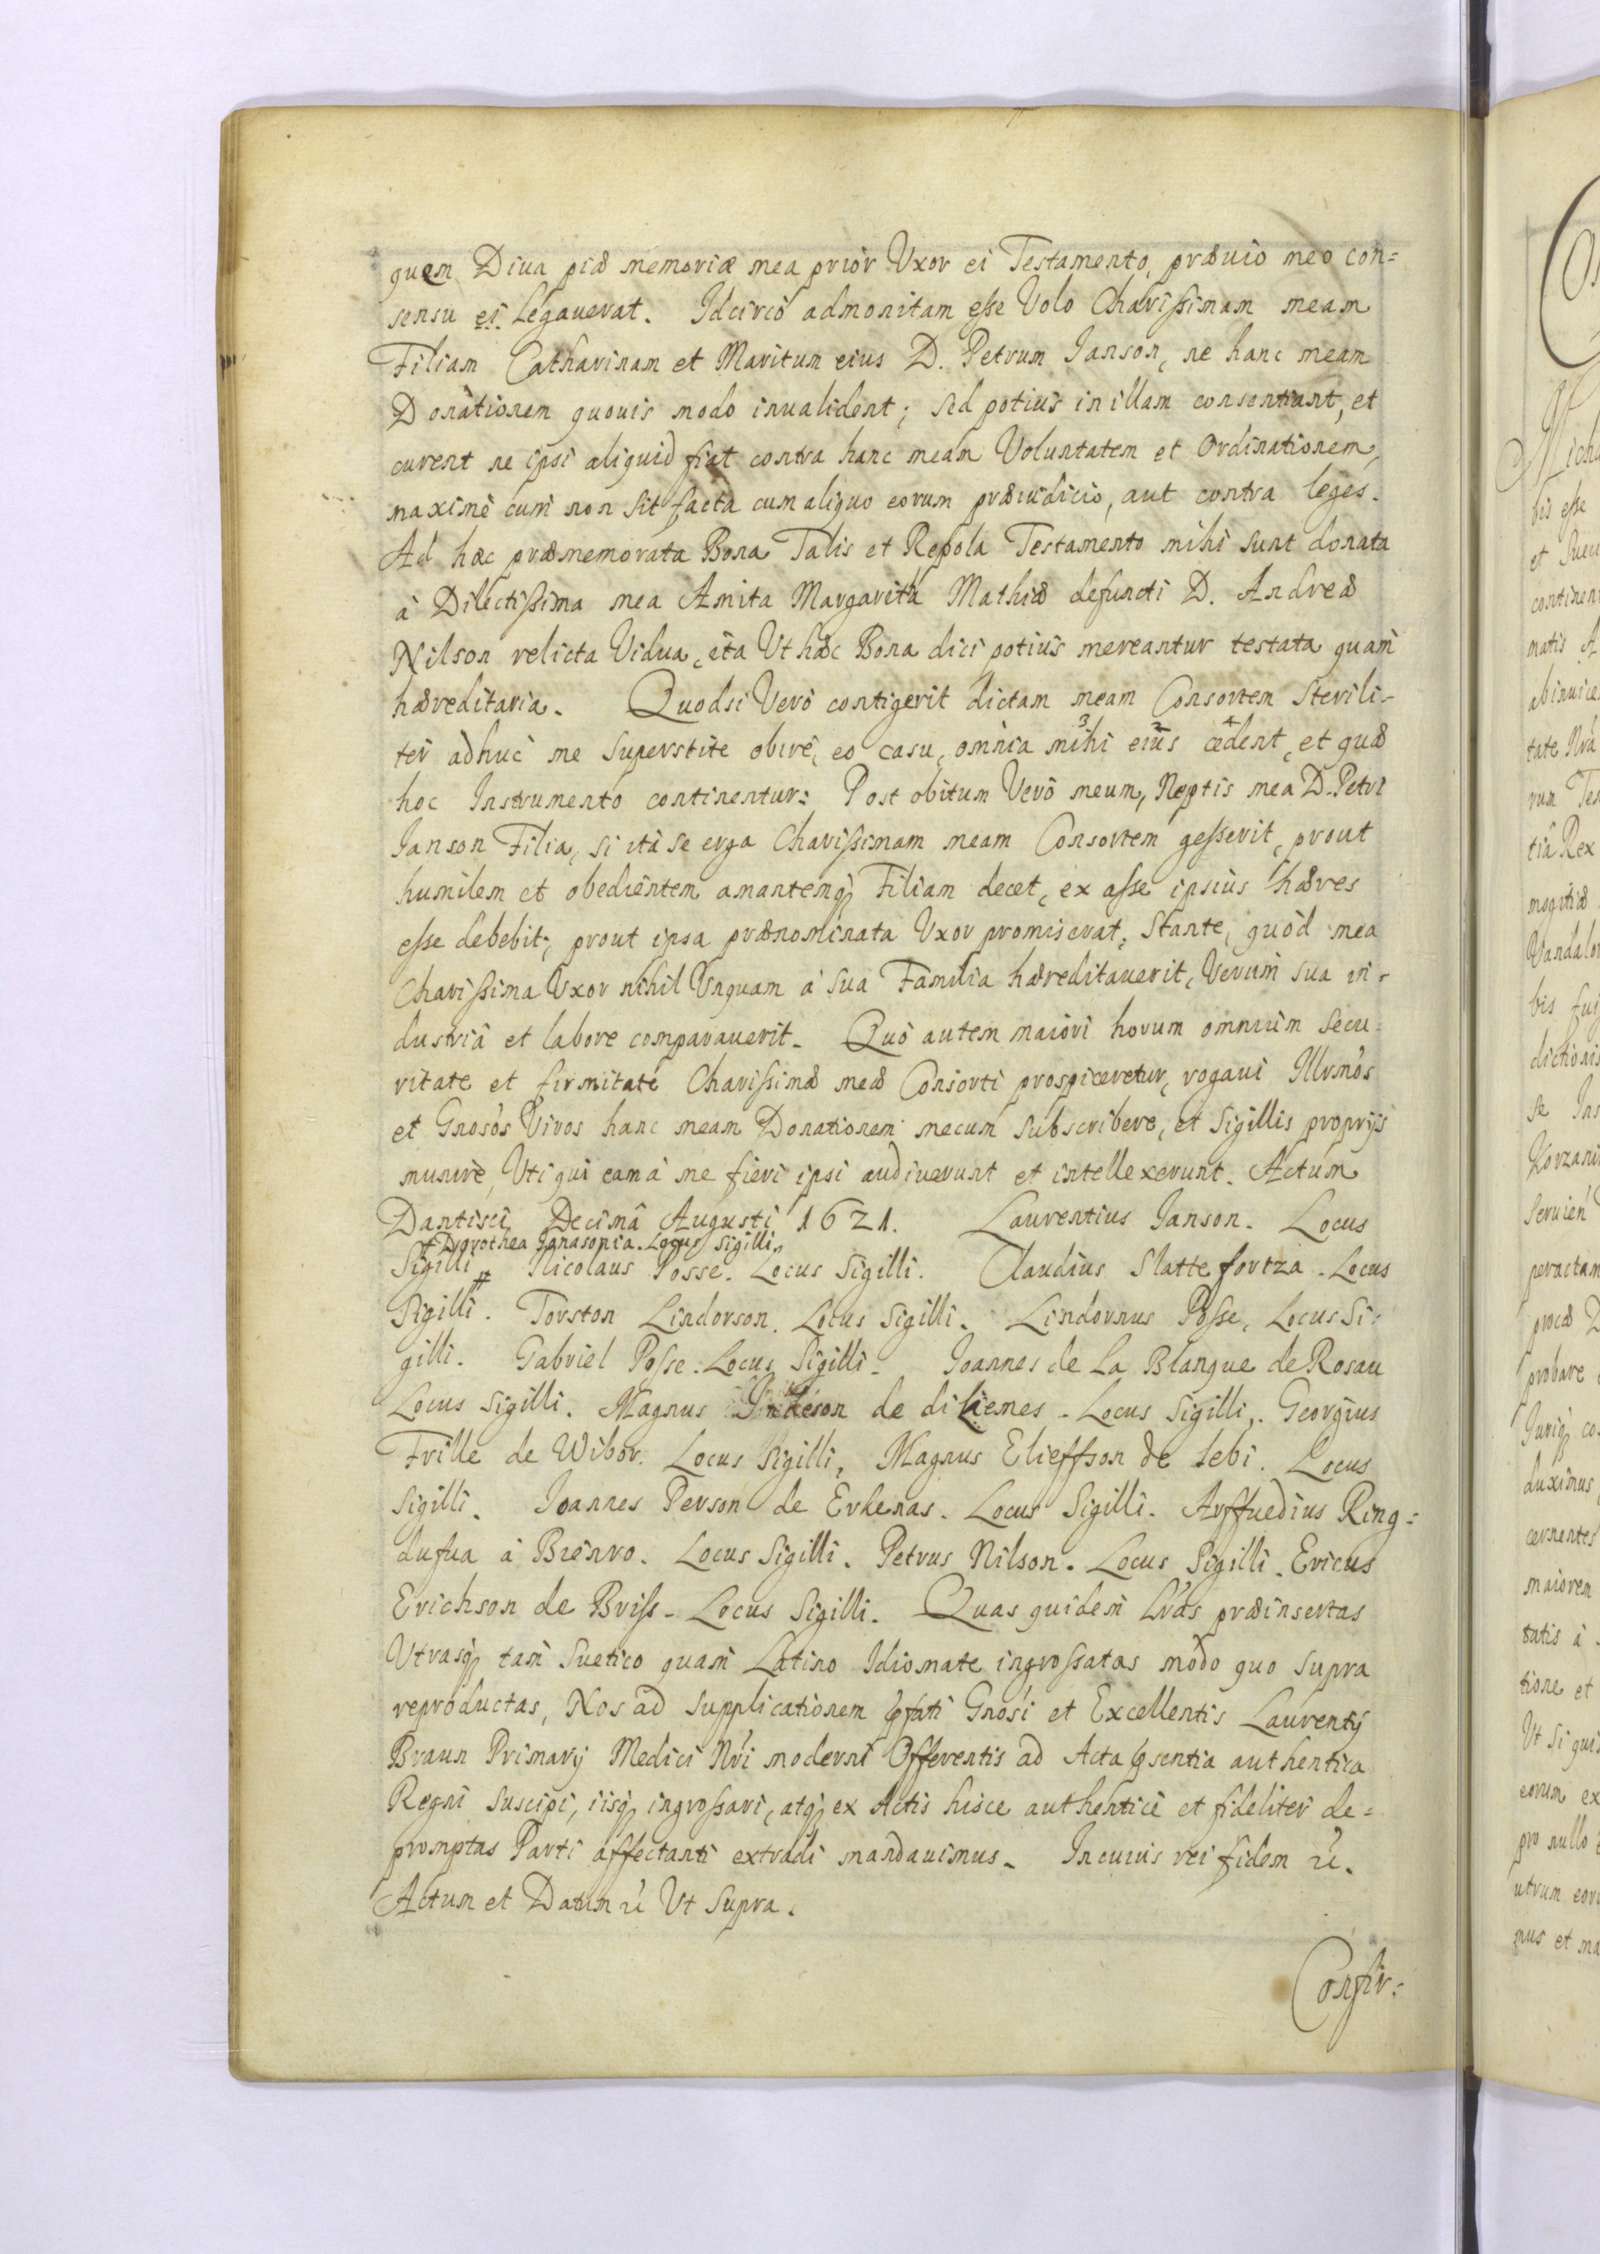 quem Diua piæ memoriæ mea prior Vxor ei Testamento, præuio meo con=
sensu ei Legauerat. Idcircò admonitam esse Volo Charissimam meam
Filiam Catharinam et Maritum eius D. Petrum Ianson, ne hanc meam
Donationem quouis modo inualident; sed potius in illam consentiant, et
curent ne ipsi aliquid fiat contra hanc meam Voluntatem et Ordinationem,
maximè cum non sit facta cum aliquo eorum præiudicio, aut contra leges.
Ad hæc præmemorata Bona Talis et Repola Testamento mihi sunt donata
à Dilectissima mea Amita Margaritha Mathiæ defuncti D. Andreæ
Nilson relicta Vidua, ita Vt hæc Bona dici potius mereantur testata quam
hæreditaria. Quodsi Verò contigerit dictam meam Consortem sterili-
ter adhuc me superstite obire, eo casu, omnia mihi eius cedent, et quæ
hoc Instrumento continentur: Post obitum Verò meum, Neptis mea D. Petri
Ianson Filia, si ità se erga Charissimam meam Consortem gesserit, prout
humilem et obedientem amantemq Filiam decet, ex asse ipsius hæres
esse debebit, prout ipsa prænominata Vxor promiserat, Stante, quòd mea
Charissima Vxor nihil Vnquam à sua Familia hæreditauerit, Verum sua in-
dustriâ et labore comparauerit. Quò autem maiori horum omnium secu-
ritate et firmitate Charissimæ meæ Consorti prospiceretur, rogaui Illrmos
et Gnosos Viros hanc meam Donationem mecum subscribere, et Sigillis proprijs
munire, Vti qui eam à me fieri ipsi audiuerunt et intellexerunt. Actum
Dantisci Decimâ Augusti 1621. Laurentius Ianson. Locus
Dorothea Ianasonia. Locus Sigilli
Sigilli # Nicolaus Posse. Locus Sigilli. Claudius Slatte fortza. Locus
Sigilli. Torston Lindorson. Locus Sigilli. Lindornus Posse, Locus Si-
gilli. Gabriel Posse. Locus Sigilli. Ioannes de La Blanque de Rosau
Locus Sigilli. Magnus de diliemes. Locus Sigilli. Georgius
Frille de Wibor. Locus Sigilli, Magnus Elieffson de Sebi. Locus
Sigilli. Ioannes Person de Erkenas. Locus Sigilli. Arffuedius Ring=
dufua à Bienro. Locus Sigilli. Petrus Nilson. Locus Sigilli. Ericus
Erichson de Briss. Locus Sigilli. Quas quidem Lras præinsertas
Vtrasq tam Suetico quam Latino Idiomate ingrossatas modo quo supra
reproductas, Nos ad supplicationem pfati Gnosi et Excellentis Laurentij
Braun Primarij Medici Nri moderni Offerentis ad Acta psentia authentica
Regni suscipi, iisq ingrossari, atq ex Actis hisce authenticè et fideliter de=
promptas Parti affectanti extradi mandauimus. In cuius rei fidem rc.
Actum et Datum rc Vt Supra.
Confir: